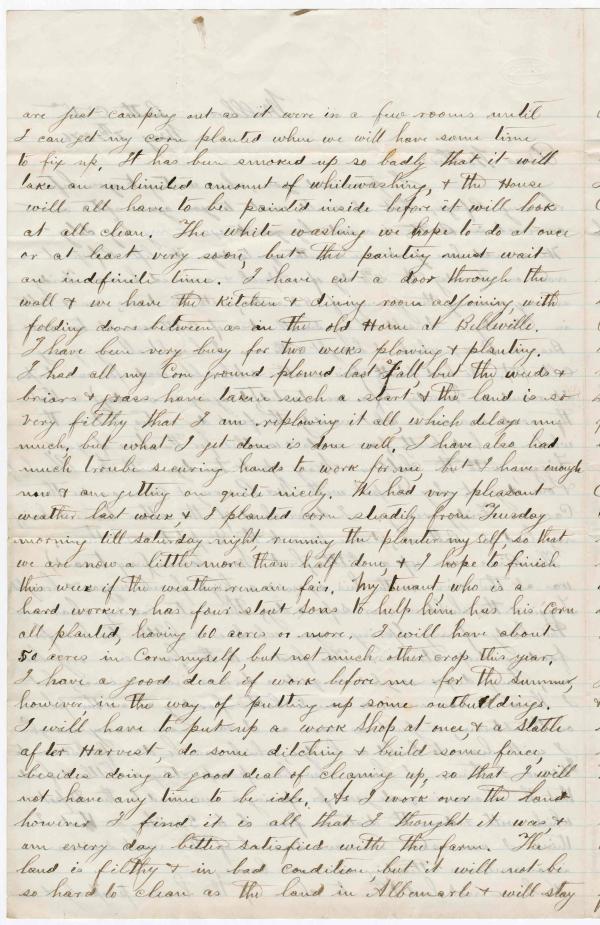 are just camping out as it were in a few rooms until
I can get my corn planted when we will have some time
to fix up. It has been smoked up so badly that it will
take an unlimited amount of whitewashing, & the House
will all have to be painted inside before it will look
at all clean. The white washing we hope to do at once
or at least very soon, but the painting must wait
an indefinite time. I have cut a door through the
wall & we have the Kitchen & dining room adjoining, with
folding doors between as in the old Home at Belleville.
I have been very busy for two weeks plowing & planting.
I had all my Corn ground plowed last fall, but the weeds &
briars & grass have taken such a start & the land is so
very filthy that I am replowing it all, which delays me
much, but what I get done is done well. I have also had
much trouble securing hands to work for me, but I have enough
now & am getting on quite nicely. We had very pleasant
weather last week, & I planted corn steadily from Tuesday
morning till saturday night, running the planter myself, so that
we are now a little more than half done, & I hope to finish
this week if the weather remain fair. My tenant, who is a
hard worker & has four stout sons to help him has his Corn
all planted, having 60 acres or more. I will have about
50 acres in Corn myself, but not much other crop this year.
I have a good deal of work before me for the summer,
however, in the way of putting up some outbuildings.
I will have to put up a work shop at once, & a stable
after Harvest, do some ditching & build some fence,
besides doing a good deal of cleaning up, so that I will
not have any time to be idle. As I work over the land
however I find it is all that I thought it was, &
am every day better satisfied with the farm. The
land is filthy & in bad condition, but it will not be
so hard to clean as the land in Albemarle & will stay